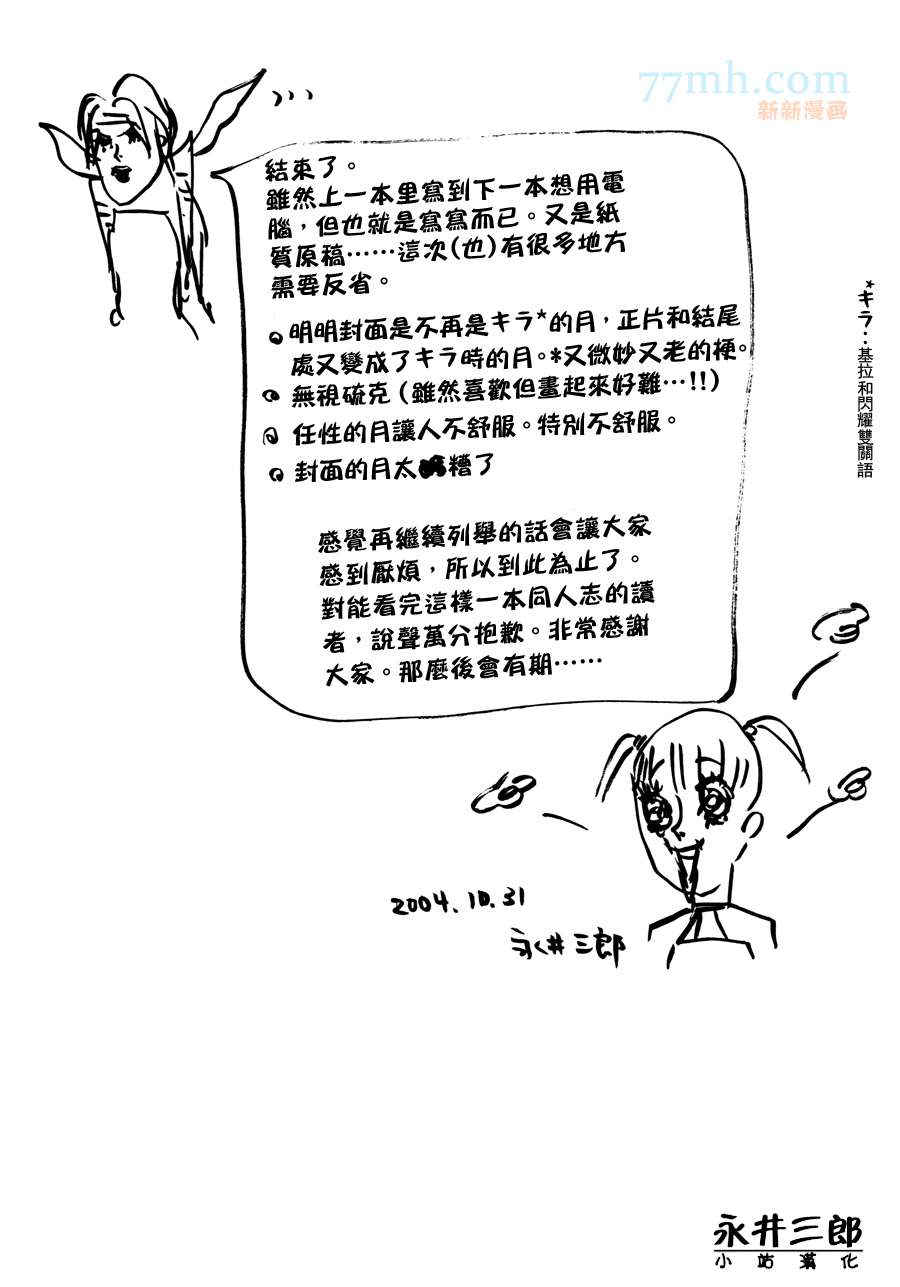 77mh.com
新新漫画
結束了。
雖然上一本里寫到下一本想用電
腦，但也就是寫寫而已。又是紙
質原稿……這次(也)有很多地方
需要反省。
明明封面是不再是キラ*的月，正片和結尾
處又變成了キラ時的月。*又微妙又老的梗。
無視硫克(雖然喜歡但畫起來好難…!!)
任性的月讓人不舒服。特別不舒服。
封面的月太糟了
感覺再繼續列舉的話會讓大家
感到厭煩，所以到此為止了。
對能看完這樣一本同人志的讀
者，說聲萬分抱歉。非常感謝
大家。那麼後會有期……
*キラ：基拉和閃耀雙關語
2004.10.31
永井三郎
永井三郎
小站漢化